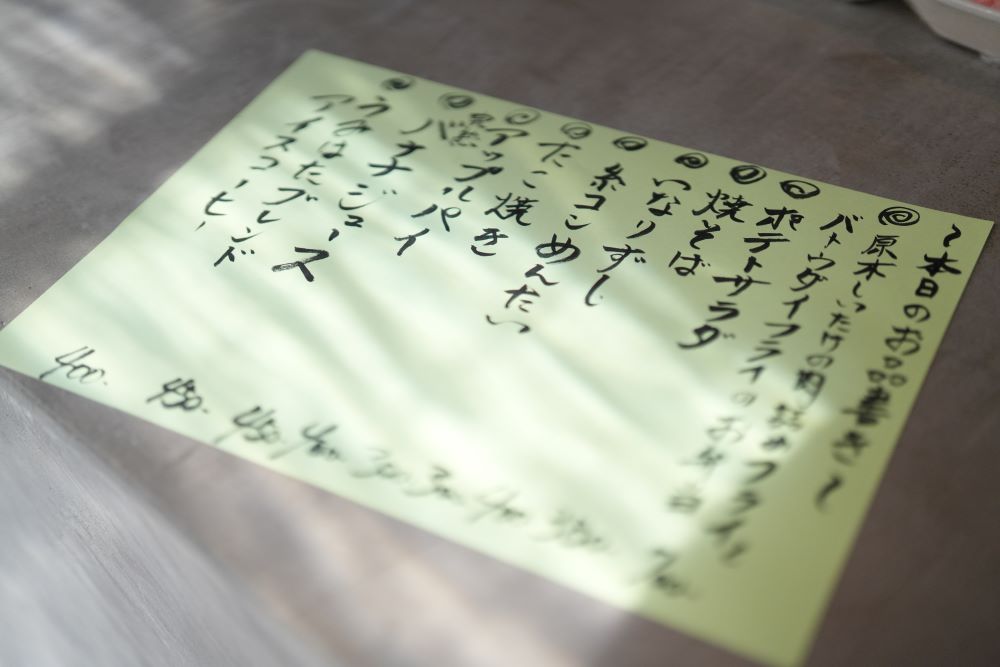 〜本日のお品書き〜
◎原木しいたけの肉詰めフライと
バトウダイフライのお弁当 700-
◎ポテトサラダ 350-
◎焼そば 400
◎いなりずし 300
◎糸コンめんたい 300-
◎たこ焼き 400
◎アップルパイ 450-
◎バナナジュース 450-
◎ブレンド
アイスコーヒー 400-